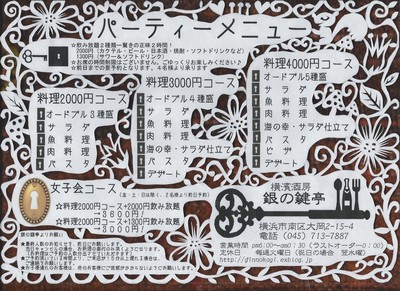 パーティーメニュー
☆飲み放題2種類－驚きの正味2時間！
2000円（カクテル・ビール・日本酒・焼酎・ソフトドリンクなど）
1300円（サワー＆ソフトドリンク）
☆お席の時間制限はございません。ごゆっくりお楽しみください。
☆前日までの要予約となります。4名様より承ります
料理2000円コース
オードブル3種盛
サラダ
魚料理
肉料理
パスタ
デザート
料理3000円コース
オードブル4種盛
サラダ
魚料理
肉料理
海の幸・サラダ仕立て
パスタ
デザート
料理4000円コース
オードブル5種盛
サラダ
魚料理
肉料理
海の幸・サラダ仕立て
パスタ
ピザ
デザート
女子会コース
（金・土・日は除く、2名様より前日予約）
☆料理2000円コース+2000円飲み放題
→3600円！
☆料理2000円コース+1300円飲み放題
→3000円！
横濱酒房
銀の鍵亭
横浜市南区大岡2-15-4
電話（045）713-7887
営業時間 pm6:00～am0:30（ラストオーダー0:00）
定休日 毎週火曜日（祝日の場合 翌水曜）
http://ginnokagi.exblog.jp